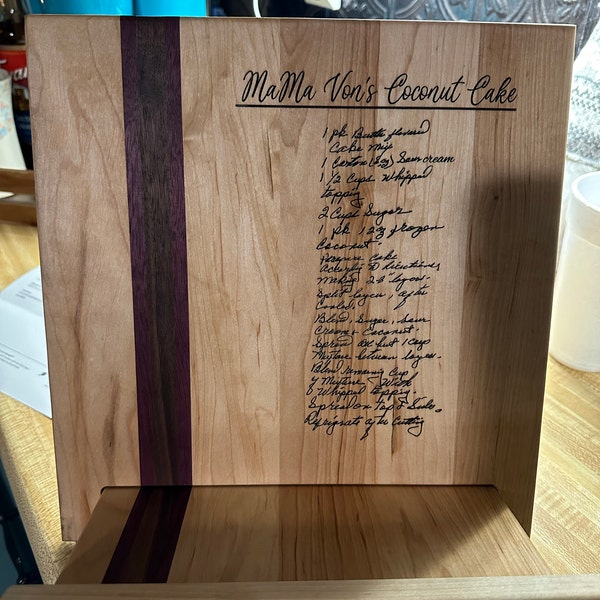 MaMa Von's Coconut Cake
1 pk Butter flavored
Cake Mix
1 Carton (8oz) Sour cream
1 1/2 Cups Whipped
topping
2 Cups Sugar
1 pk 12oz frozen
Coconut
Prepare Cake
According to directions,
Making 2 8" layers.
Split layers, after
Cooled,
Blend, Sugar, Sour
Cream & Coconut.
Spread all but 1 Cup
Mixture between layers.
Blend remaining Cup
of Mixture With
Whipped topping.
Spread on top & Side.
Refrigerate after Cutting